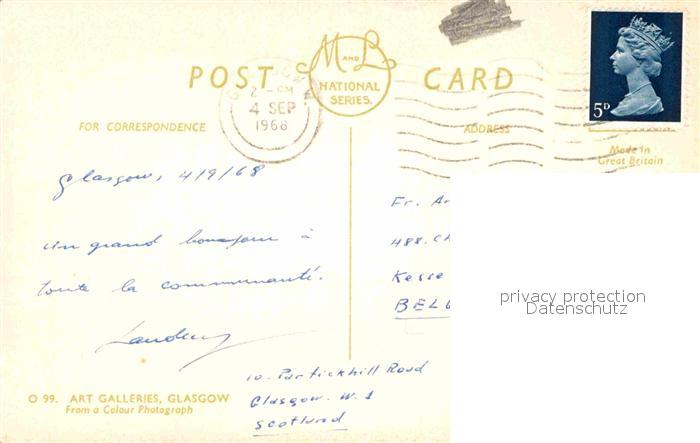 POST CARD
M AND L
NATIONAL
SERIES.
2 - PM
4 SEP
1968
5D
FOR CORRESPONDENCE
ADDRESS
Made in
Great Britain
Glasgow, 4/9/68
Un grand bonjour à
toute la communauté.
Fr. Ar
488. Ch
Kesse
BEL
privacy protection
Datenschutz
10. Partickhill Road
Glasgow. W. 1
Scotland
O 99. ART GALLERIES, GLASGOW
From a Colour Photograph